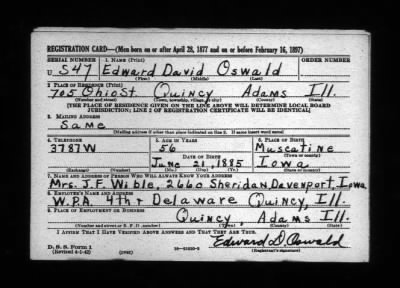 REGISTRATION CARD—(Men born on or after April 28, 1877 and on or before February 16, 1897)
SERIAL NUMBER 1. NAME (Print) ORDER NUMBER
U 547 Edward David Oswald
(First) (Middle) (Last)
2. PLACE OF RESIDENCE (Print)
705 Ohio St. Quincy Adams Ill.
(Number and street) (Town, township, village, or city) (County) (State)
[THE PLACE OF RESIDENCE GIVEN ON THE LINE ABOVE WILL DETERMINE LOCAL BOARD
JURISDICTION; LINE 2 OF REGISTRATION CERTIFICATE WILL BE IDENTICAL]
3. MAILING ADDRESS
Same
[Mailing address if other than place indicated on line 2. If same insert word same]
4. TELEPHONE 5. AGE IN YEARS 6. PLACE OF BIRTH
3781W 56 Muscatine
DATE OF BIRTH (Town or county)
June 21, 1885 Iowa
(Exchange) (Number) (Mo.) (Day) (Yr.) (State or country)
7. NAME AND ADDRESS OF PERSON WHO WILL ALWAYS KNOW YOUR ADDRESS
Mrs. J.F. Wible, 2660 Sheridan, Davenport, Iowa
8. EMPLOYER'S NAME AND ADDRESS
W.P.A. 4th & Delaware Quincy, Ill.
9. PLACE OF EMPLOYMENT OR BUSINESS
Quincy, Adams Ill.
(Number and street or R. F. D. number) (Town) (County) (State)
I AFFIRM THAT I HAVE VERIFIED ABOVE ANSWERS AND THAT THEY ARE TRUE.
D. S. S. Form 1 Edward D. Oswald
(Revised 4-1-42) (over) (Registrant's signature)